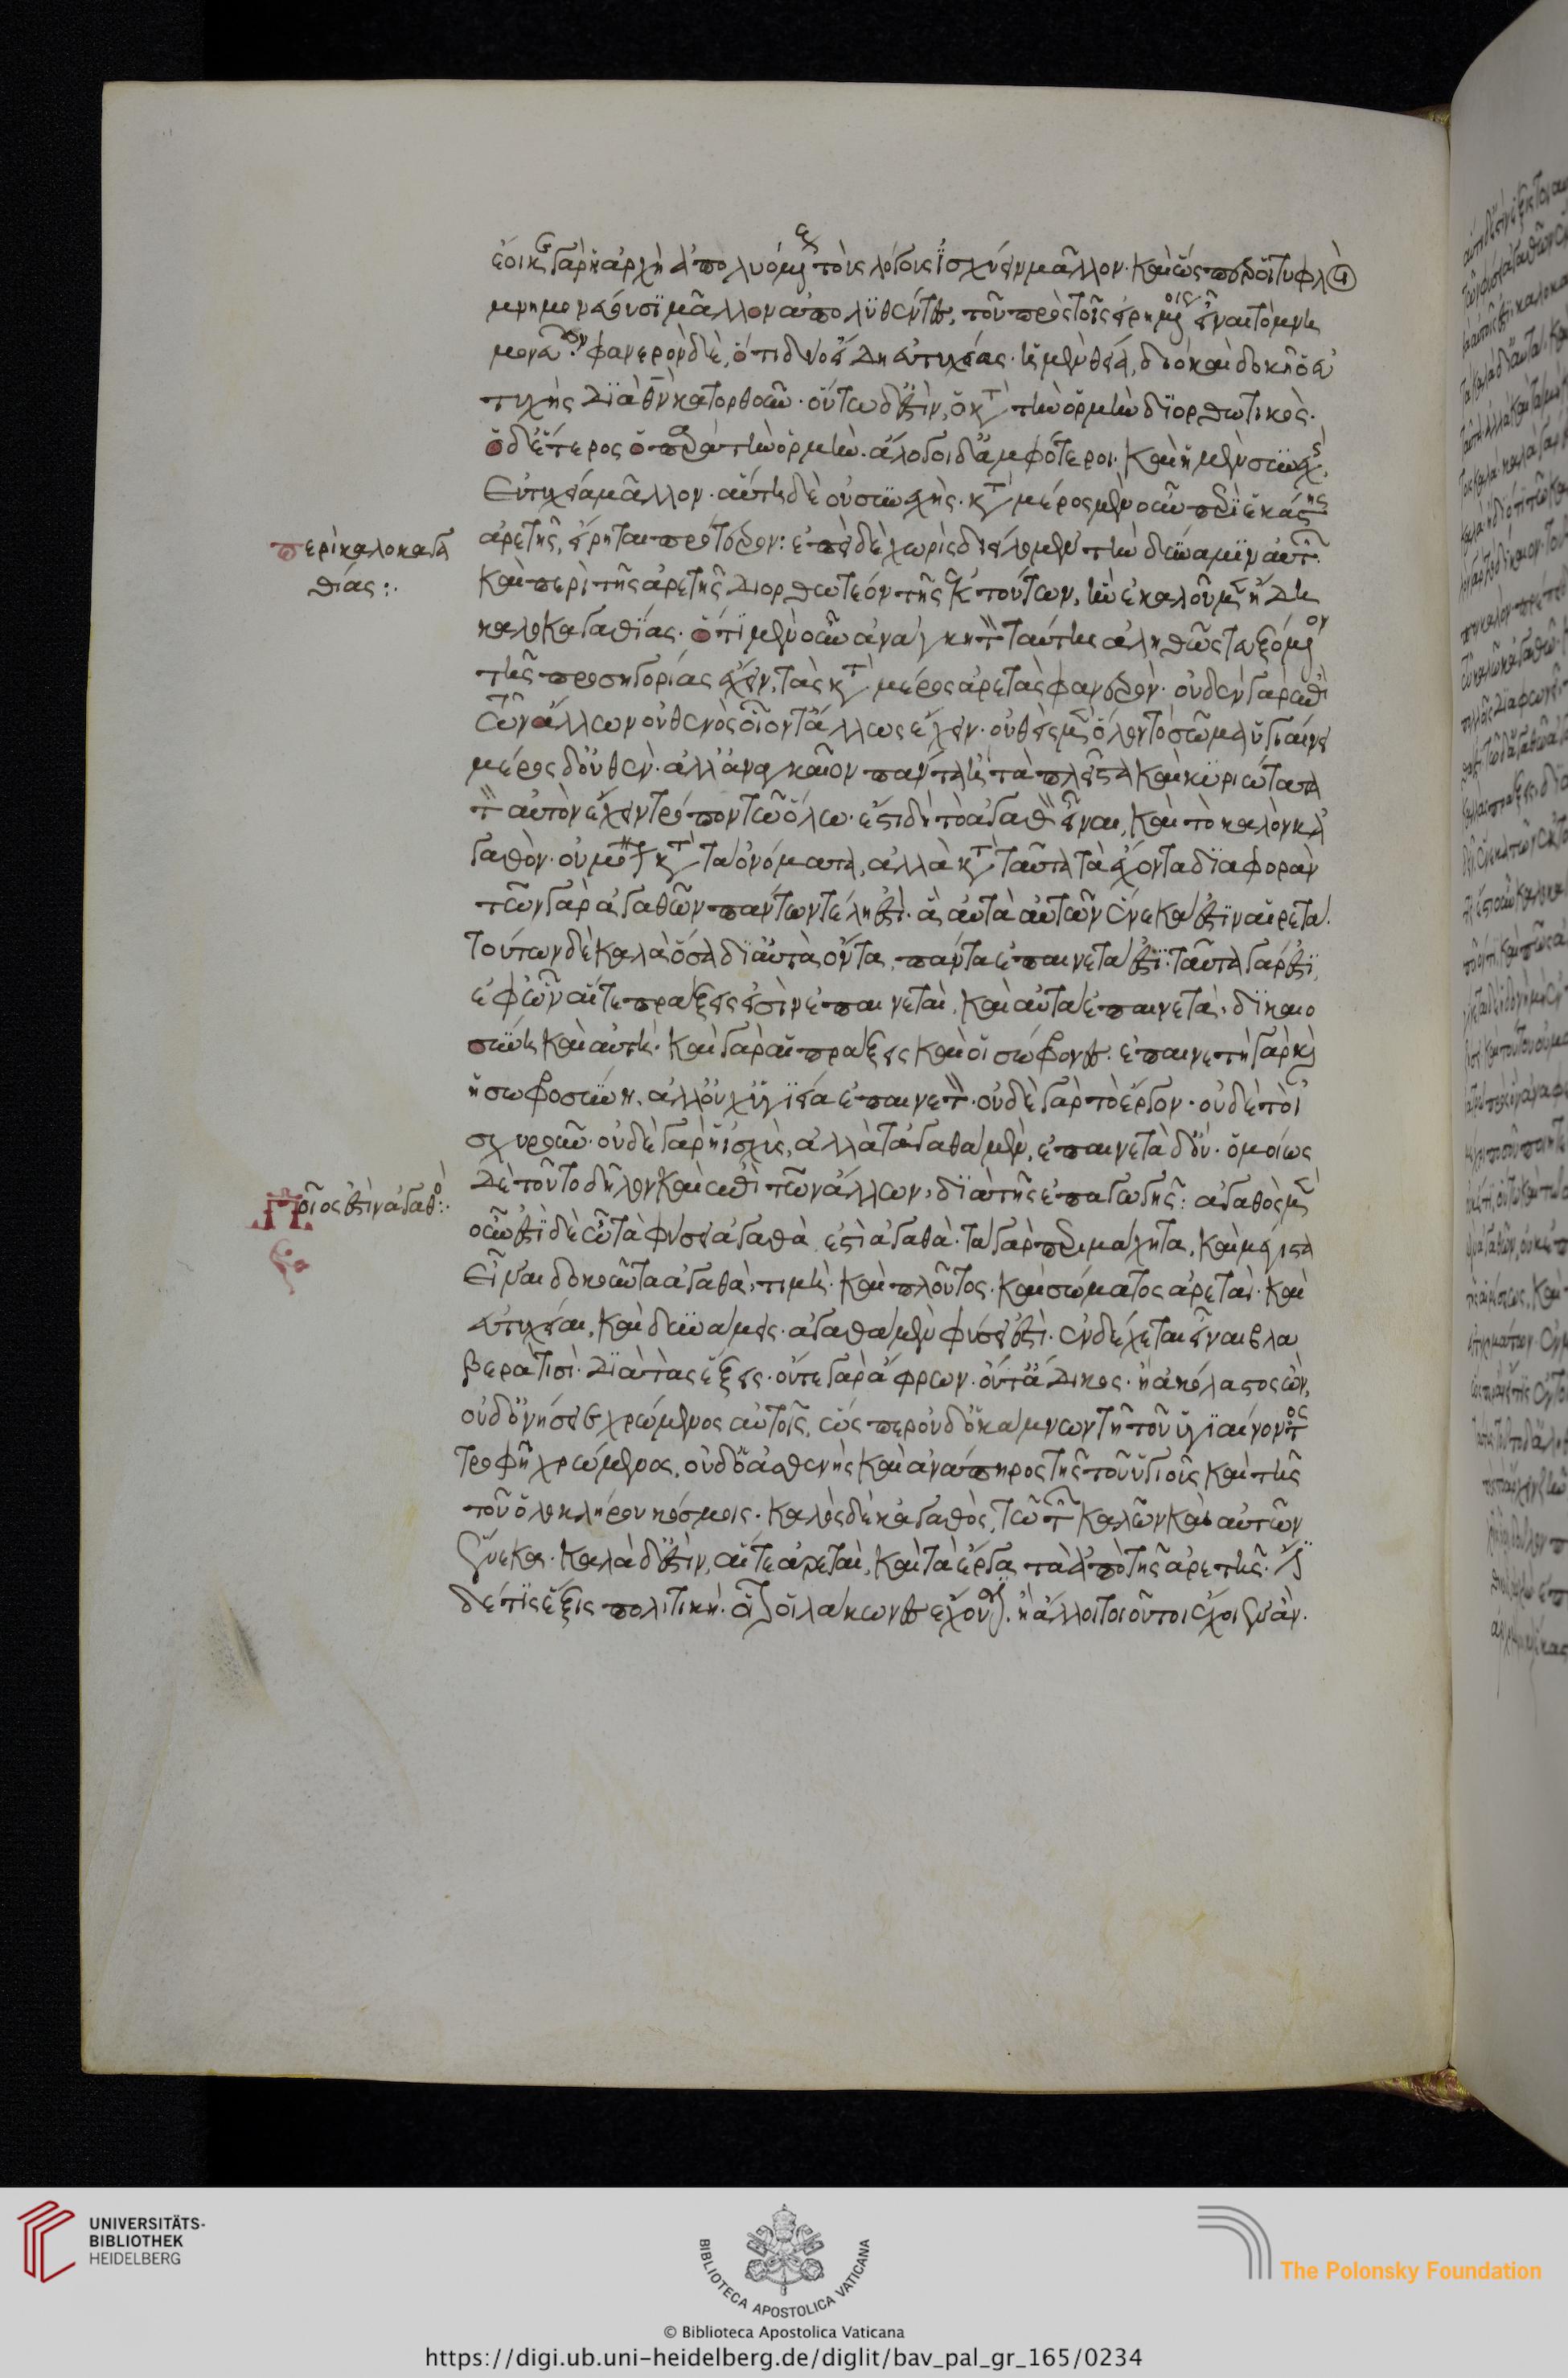 ἔοικε γὰρ ἡ ἀρχὴ ἀπολυομένη τοῖς λόγοις ἰσχύειν μᾶλλον· καὶ ὥσπερ οἱ τυφλοὶ
μνημονεύουσι μᾶλλον ἀπολυθέντες, τοῦ πρὸς τοῖς εἰρημένοις εἶναι τὸ μνη
μονεῦον· φανερὸν δὲ, ὅτι δύο εἴδη εὐτυχίας· ἡ μὲν θεία, διὸ καὶ δοκεῖ ὁ εὐ
τυχὴς διὰ θεὸν κατορθοῦν· οὗτος δ' ἐστὶν, ὁ κατὰ τὴν ὁρμὴν διορθωτικὸς·
ὁ δ' ἕτερος ὁ παρὰ τὴν ὁρμήν. ἄλογοι δ' ἀμφότεροι· καὶ ἡ μὲν συνεχὴς
εὐτυχία μᾶλλον· αὕτη δὲ οὐ συνεχής. κατὰ μέρος μὲν οὖν περὶ ἑκάστης
περὶ καλοκαγα
θίας:
ἀρετῆς, εἴρηται πρότερον: ἐπεὶ δὲ χωρὶς διείλομεν τὴν δύναμιν αὐτῶν
καὶ περὶ τῆς ἀρετῆς διορθωτέον τῆς ἐκ τούτων, ἣν ἐκαλοῦμεν ἤδη
καλοκαγαθίας. ὅτι μὲν οὖν ἀνάγκη τὸν ταύτης ἀληθῶς τευξόμενον
τῆς προσηγορίας ἔχειν, τὰς κατὰ μέρος ἀρετὰς φανερόν· οὐδὲν γὰρ ἐπὶ
τῶν ἄλλων οὐθενὸς οἷόν τ' ἄλλως ἔχειν· οὐθεὶς μὲν ὅλον τὸ σῶμα ὑγιαίνει
μέρος δ' οὐθέν· ἀλλ' ἀναγκαῖον πάντα ἢ τὰ πλεῖστα καὶ κυριώτατα
τὸν αὐτὸν ἔχειν τρόπον τῷ ὅλῳ. ἔστι δὴ τὸ ἀγαθὸν εἶναι, καὶ τὸ καλὸν κἀ
γαθὸν· οὐ μόνον κατὰ τὰ ὀνόματα, ἀλλὰ κατὰ ταῦτα τὰ ἔχοντα διαφορὰν
τῶν γὰρ ἀγαθῶν πάντων τέλη ἐστὶ· ἃ αὐτὰ αὑτῶν ἕνεκά ἐστιν αἱρετά.
τούτων δὲ καλὰ ὅσα δι' αὑτὰ ὄντα, πάντα ἐπαινετά ἐστι· ταῦτα γάρ ἐστι,
ἐφ' ὧν αἵ τε πράξεις εἰσὶν ἐπαινεταὶ, καὶ αὐτὰ ἐπαινετὰ, δικαιο
σύνη καὶ αὐτὴ· καὶ γὰρ αἱ πράξεις καὶ οἱ σώφρονες. ἐπαινετὴ γὰρ καὶ
ἡ σωφροσύνη. ἀλλ' οὐχ ὑγίεια ἐπαινετόν· οὐδὲ γὰρ τὸ ἔργον· οὐδὲ τὸ ἰ
σχυρῶς· οὐδὲ γὰρ ἡ ἰσχὺς, ἀλλὰ τἀγαθὰ μὲν, ἐπαινετὰ δ' οὔ· ὁμοίως
ποῖος ἐστὶν ἀγαθός:
δὲ τοῦτο δῆλον καὶ ἐπὶ τῶν ἄλλων, διὰ τῆς ἐπαγωγῆς: ἀγαθὸς μὲν
οὖν ἐστὶ δὲ ᾧ τὰ φύσει ἀγαθὰ ἐστὶ ἀγαθὰ· τὰ γὰρ περιμάχητα, καὶ μέγιστα
εἶναι δοκοῦντα ἀγαθὰ, τιμὴ· καὶ πλοῦτος· καὶ σώματος ἀρεταὶ· καὶ
εὐτυχίαι, καὶ δυνάμεις· ἀγαθὰ μὲν φύσει ἐστὶ· ἐνδέχεται εἶναι βλα
βερά τισι· διὰ τὰς ἕξεις· οὔτε γὰρ ἄφρων· οὔτ' ἄδικος· ἢ ἀκόλαστος ὢν,
οὐδὲ ὀνήσειε χρώμενος αὐτοῖς, ὥσπερ οὐδ' ὁ κάμνων τῇ τοῦ ὑγιαίνοντος
τροφῇ χρώμενος, οὐδ' ὁ ἀσθενὴς καὶ ἀνάπηρος τῆς τοῦ ὑγιοῦς καὶ τῆς
τοῦ ὁλοκλήρου κόσμοις. καλὸς δὲ κἀγαθὸς, τῷ τῶν καλῶν καὶ αὐτῶν
ἕνεκα. καλὰ δ' ἐστὶν, αἵ τε ἀρεταὶ, καὶ τὰ ἔργα τὰ ἀπὸ τῆς ἀρετῆς. ἔστι
δέ τις ἕξις πολιτικὴ· οἵαν οἱ λάκωνες ἔχουσιν. ἢ ἄλλοι τοιοῦτοι ἔχοιεν ἄν.
UNIVERSITÄTS-
BIBLIOTHEK
HEIDELBERG
BIBLIOTECA APOSTOLICA VATICANA
The Polonsky Foundation
© Biblioteca Apostolica Vaticana
https://digi.ub.uni-heidelberg.de/diglit/bav_pal_gr_165/0234